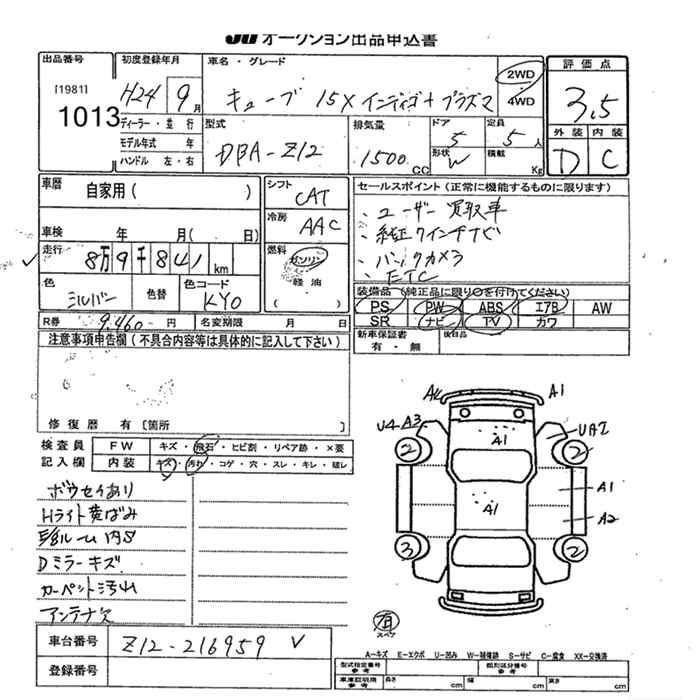 JU オークション出品申込書
出品番号
[1981]
1013
初度登録年月
H24 9月
ディーラー・並行
モデル年式 年
ハンドル 左・右
車名・グレード
キューブ 15X インディゴ+プラズマ
2WD
4WD
型式
DBA-Z12
排気量
1500 CC
ドア
5
形状
W
定員
5 人
積載
Kg
評価点
3.5
外装 内装
D C
車歴
自家用( )
車検 年 月( 日)
走行
8万9千841 km
色
シルバー
色替
色コード
KY0
シフト
CAT
冷房
AAC
燃料
ガソリン
軽油
( )
セールスポイント(正常に機能するものに限ります)
・ユーザー買取車
・純正ワインチTV
・バックカメラ
・ETC
装備品(純正品に限り○を付けてください)
PS PW ABS エアB AW
SR ナビ TV カワ
新車保証書
有・無
後日品
R券 9,460 円
名変期限 月 日
注意事項申告欄(不具合内容等は具体的に記入して下さい)
修復歴 有〔箇所 〕
検査員
記入欄
FW キズ・飛石・ヒビ割・リペア跡・×要
内装 キズ・汚れ・コゲ・穴・スレ・キレ・破レ
ボウセイあり
Hライト黄ばみ
Dミラーキズ
カーペット汚れ
アンテナ欠
車台番号
Z12-216959
登録番号
A1
U4 A3
UA2
A1
2
2
A1
A1
A2
3
2
有
スペア
A-キズ E-エクボ U-凹み W-補修跡 S-サビ C-腐食 XX-交換済
型式指定番号
参考
類別区分番号
参考
車庫証明用
参考
長さ cm
幅 cm
高さ cm